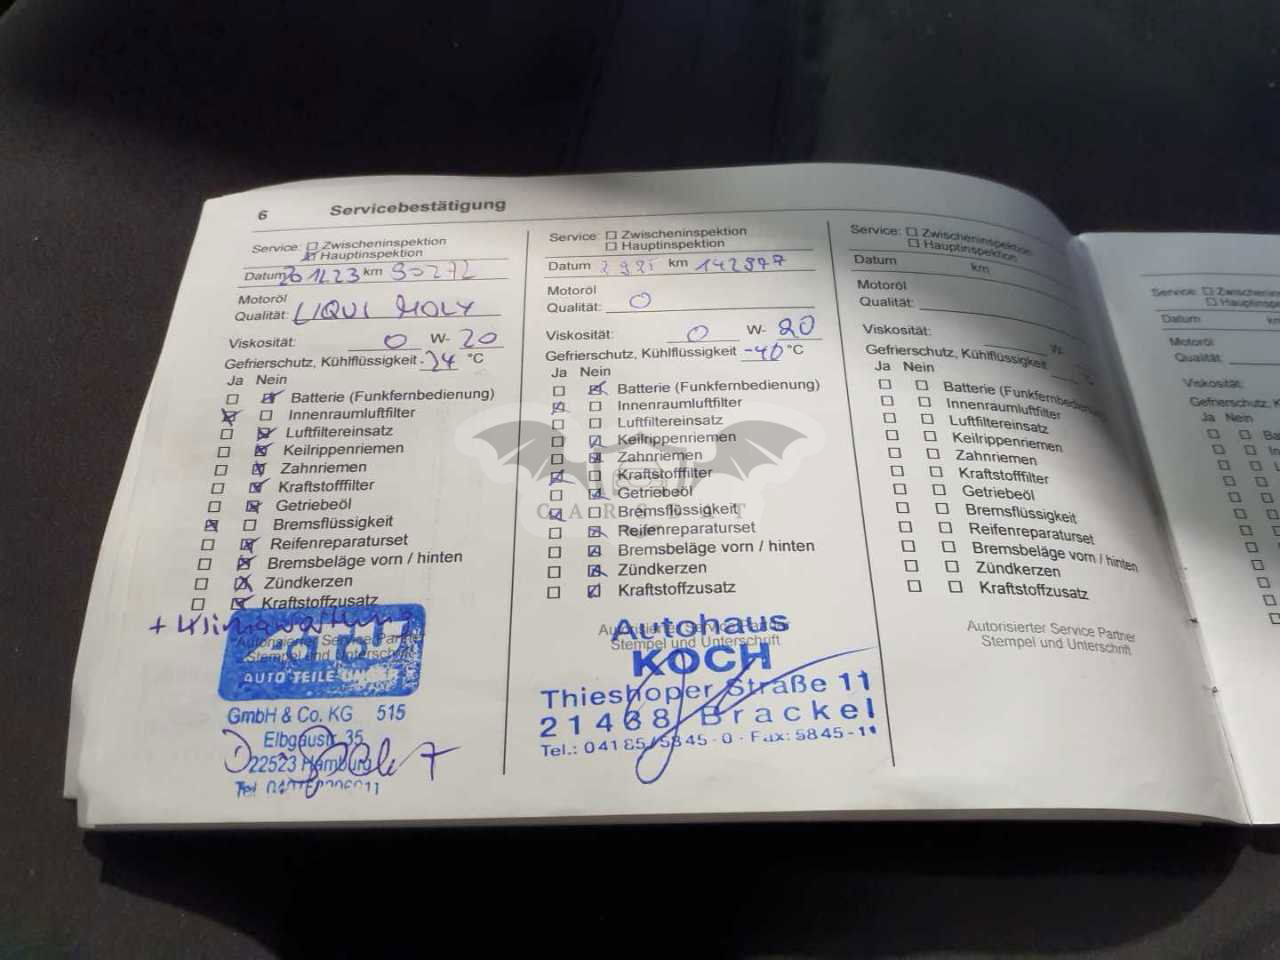 6 Servicebestätigung
Service: Zwischeninspektion
Hauptinspektion
Datum 20.12.23 km 90272
Motoröl
Qualität: LIQUI MOLY
Viskosität: 0 W- 20
Gefrierschutz, Kühlflüssigkeit °C
Ja Nein
Batterie (Funkfernbedienung)
Innenraumluftfilter
Luftfiltereinsatz
Keilrippenriemen
Zahnriemen
Kraftstofffilter
Getriebeöl
Bremsflüssigkeit
Reifenreparaturset
Bremsbeläge vorn / hinten
Zündkerzen
Kraftstoffzusatz
+ Klimawartung
Autorisierter Service Partner
Stempel und Unterschrift
AUTO TEILE UNGER
GmbH & Co. KG 515
Elbgaustr. 35
22523 Hamburg
Service: Zwischeninspektion
Hauptinspektion
Datum km 142977
Motoröl
Qualität: 0
Viskosität: 0 W- 20
Gefrierschutz, Kühlflüssigkeit -40 °C
Ja Nein
Batterie (Funkfernbedienung)
Innenraumluftfilter
Luftfiltereinsatz
Keilrippenriemen
Zahnriemen
Kraftstofffilter
Getriebeöl
Bremsflüssigkeit
Reifenreparaturset
Bremsbeläge vorn / hinten
Zündkerzen
Kraftstoffzusatz
Autorisierter Service Partner
Stempel und Unterschrift
Autohaus
KOCH
Thieshoper Straße 11
21438 Brackel
Tel.: 04185/5845-0 · Fax: 5845-11
Service: Zwischeninspektion
Hauptinspektion
Datum km
Motoröl
Qualität:
Viskosität: W-
Gefrierschutz, Kühlflüssigkeit °C
Ja Nein
Batterie (Funkfernbedienung)
Innenraumluftfilter
Luftfiltereinsatz
Keilrippenriemen
Zahnriemen
Kraftstofffilter
Getriebeöl
Bremsflüssigkeit
Reifenreparaturset
Bremsbeläge vorn / hinten
Zündkerzen
Kraftstoffzusatz
Autorisierter Service Partner
Stempel und Unterschrift
Service: Zwischeninspektion
Hauptinspektion
Datum km
Motoröl
Qualität:
Viskosität:
Gefrierschutz,
Ja Nein